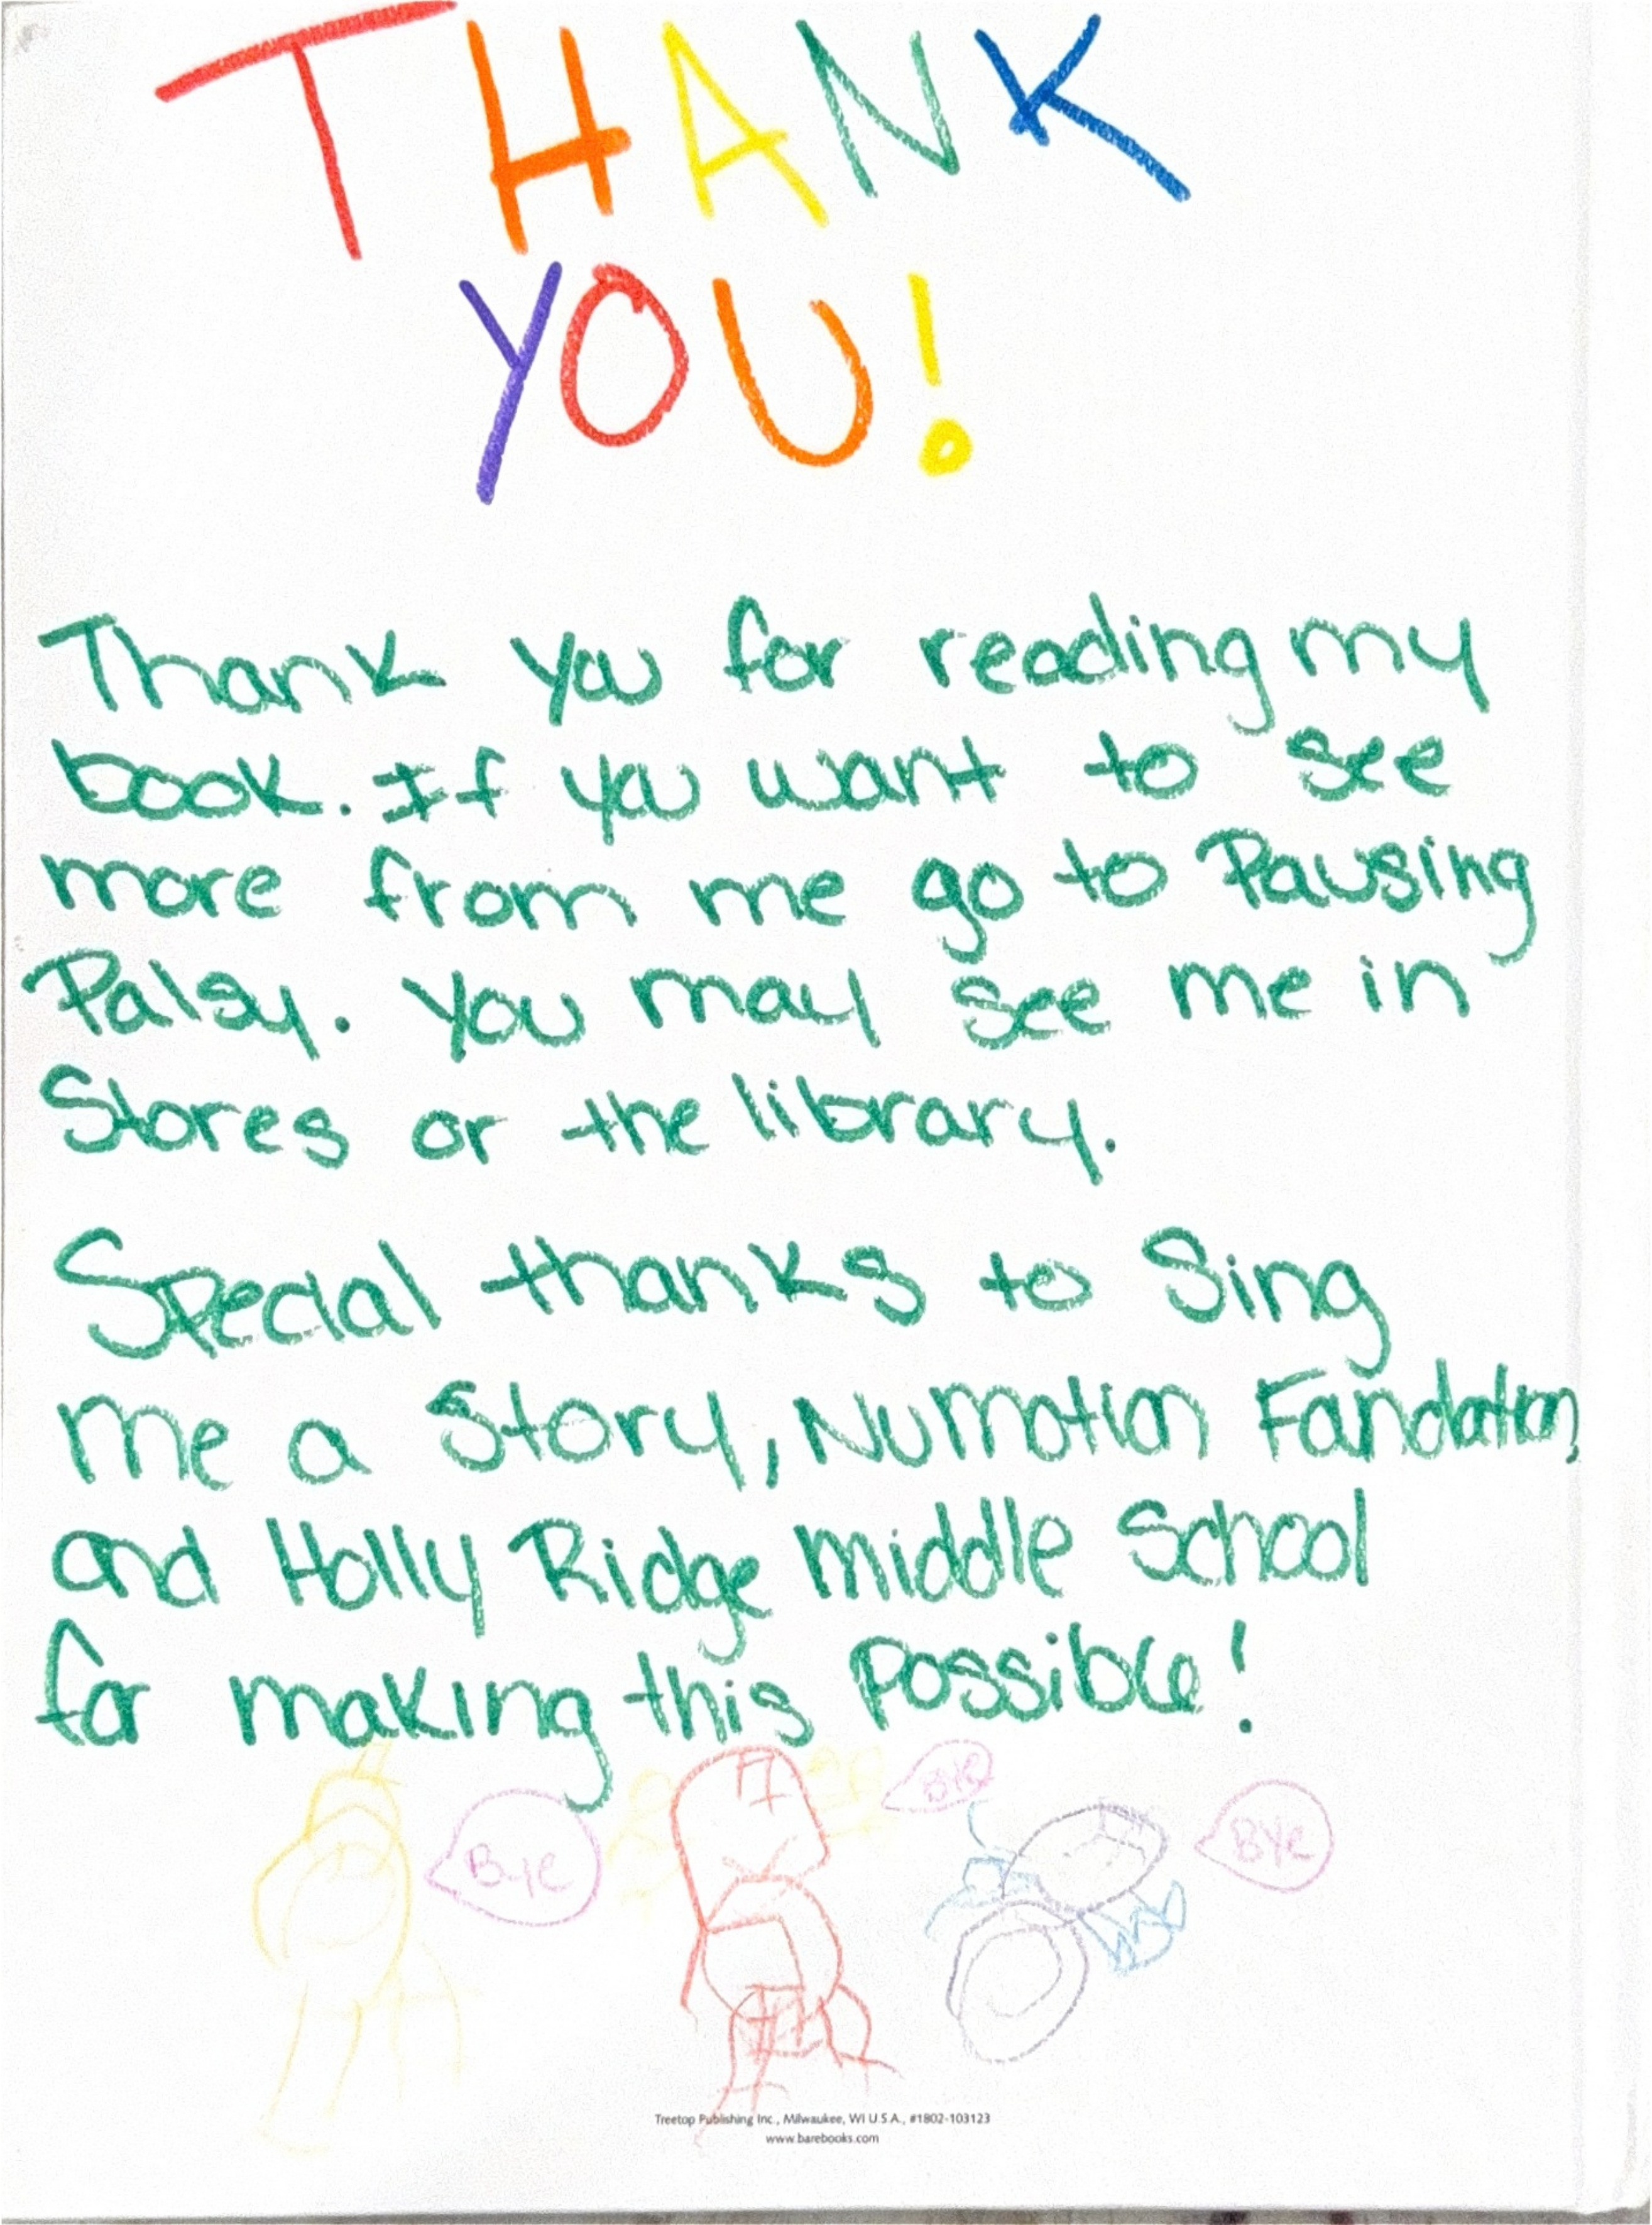 THANK
YOU!
Thank you for reading my
book. If you want to see
more from me go to Pausing
Palsy. You may see me in
Stores or the library.
Special thanks to Sing
me a Story, Numotion Fandation,
and Holly Ridge middle School
for making this possible!
Bye
Bye
Bye
Treetop Publishing Inc., Milwaukee, WI U.S.A., #1802-103123
www.barebooks.com